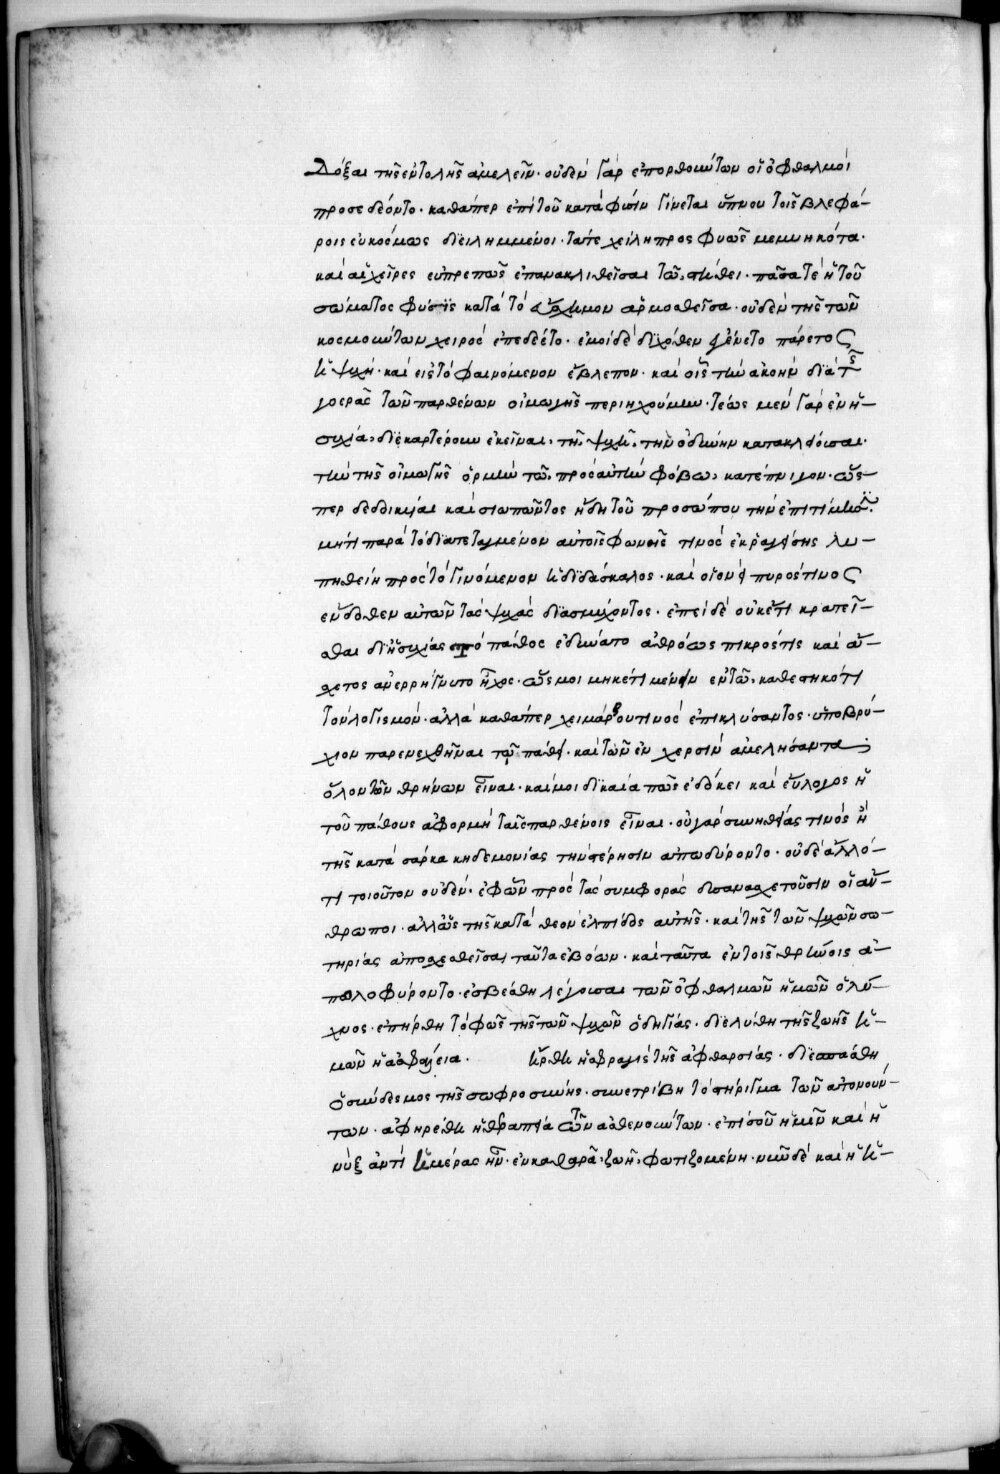 Δόξαι τῆς ἐντολῆς ἀμελεῖν· οὐδὲν γὰρ ἐπορθούντων οἱ ὀφθαλμοὶ
προσεδέοντο· καθάπερ ἐπὶ τοῦ κατὰ φύσιν γίνεται ὕπνου τοῖς βλεφά-
ροις εὐκόσμως διειλημμένοι· τά τε χείλη προσφυῶς μεμυκότα·
καὶ αἱ χεῖρες εὐπρεπῶς ἐπανακλιθεῖσαι τῷ στήθει· πᾶσά τε ἡ τοῦ
σώματος φύσις κατὰ τὸ εὔσχημον ἁρμοσθεῖσα· οὐδὲν τῆς τῶν
κοσμούντων χειρὸς ἐπεδέετο· ἐμοὶ δὲ διχόθεν ἐγένετο πάρετος
ἡ ψυχή· καὶ εἰς τὸ φαινόμενον ἔβλεπον· καὶ οἷς τὴν ἀκοὴν διὰ τῆς
γοερᾶς τῶν παρθένων οἰμωγῆς περιηχούμην· τέως μὲν γὰρ ἐν ἡ-
συχίᾳ διεκαρτέρουν ἐκεῖναι, τῇ ψυχῇ τὴν ὀδύνην κατακλείουσαι·
τὴν τῆς οἰμωγῆς ὁρμὴν τῷ πρὸς αὐτὴν φόβῳ κατέπνιγον· ὥσ-
περ δεδοικυῖαι καὶ σιωπῶντος ἤδη τοῦ προσώπου τὴν ἐπιτίμησιν·
μή τι παρὰ τὸ διατεταγμένον αὐτοῖς φωνῆς τινὸς ἐκραγείσης λυ-
πηθείη πρὸς τὸ γινόμενον ἡ διδάσκαλος· καὶ οἱονεὶ πυρός τινος
ἔνδοθεν αὐτῶν τὰς ψυχὰς διασμύχοντος· ἐπειδὲ οὐκέτι κρατεῖ-
σθαι δι' ἡσυχίας τὸ πάθος ἐδύνατο ἀθρόως πικρός τις καὶ ἄ-
σχετος ἀνερρήγνυτο ἦχος· ὥς μοι μηκέτι μένειν ἐν τῷ καθεστηκότι
τὸν λογισμόν· ἀλλὰ καθάπερ χειμάρρου τινὸς ἐπικλύσαντος· ὑποβρύ-
χιον παρενεχθῆναι τῷ πάθει· καὶ τῶν ἐν χερσὶν ἀμελήσαντα
ὅλον τῶν θρήνων εἶναι· καί μοι δικαία πως ἐδόκει καὶ εὔλογος ἡ
τοῦ πάθους ἀφορμὴ ταῖς παρθένοις εἶναι· οὐ γὰρ συνηθείας τινὸς ἢ
τῆς κατὰ σάρκα κηδεμονίας τὴν στέρησιν ἀπωδύροντο· οὐδὲ ἄλλό-
τι τοιοῦτον οὐδὲν· ἐφ' ὧν πρὸς τὰς συμφορὰς δυσανασχετοῦσιν οἱ ἄν-
θρωποι· ἀλλ' ὡς τῆς κατὰ θεὸν ἐλπίδος αὐτῆς· καὶ τῆς τῶν ψυχῶν σω-
τηρίας ἀποσχισθεῖσαι ταῦτα ἐβόων· καὶ ταῦτα ἐν τοῖς θρήνοις ἀ-
πωλοφύροντο· ἐσβέσθη λέγουσαι τῶν ὀφθαλμῶν ἡμῶν ὁ λύ-
χνος· ἐπήρθη τὸ φῶς τῆς τῶν ψυχῶν ὁδηγίας· διελύθη τῆς ζωῆς ἡ-
μῶν ἡ ἀσφάλεια· ἤρθη ἡ σφραγὶς τῆς ἀφθαρσίας· διεσπάσθη
ὁ σύνδεσμος τῆς σωφροσύνης· συνετρίβη τὸ στήριγμα τῶν ἀτονούν-
των· ἀφηρέθη ἡ θεραπεία τῶν ἀσθενούντων· ἐπὶ σοῦ ἡμῖν καὶ ἡ
νὺξ ἀντὶ ἡμέρας ἦν· ἐν καθαρᾷ ζωῇ φωτιζομένη· νῦν δὲ καὶ ἡ ἡ-